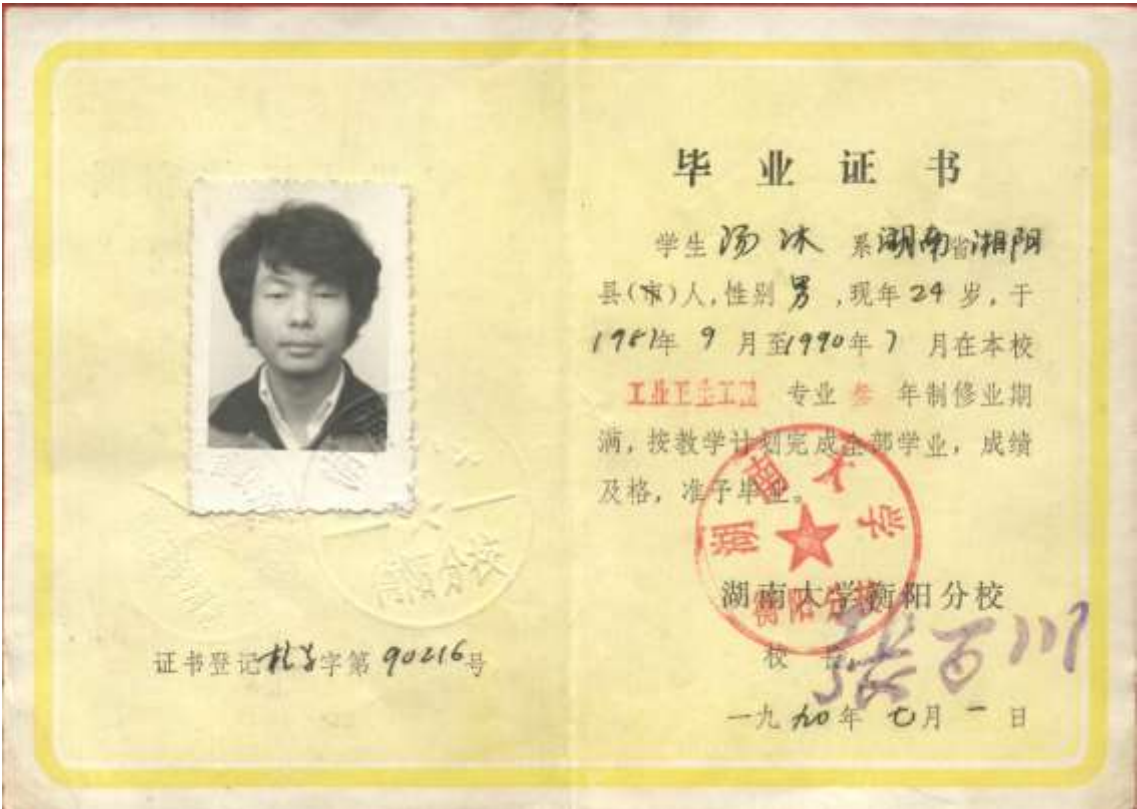 证书登记 字第 90216 号
毕业证书
学生 汤冰 系湖南省湘阴
县(市)人,性别 男 ,现年 24 岁,于
1987年 9 月至1990年 7 月在本校
工业卫生工程 专业 叁 年制修业期
满,按教学计划完成全部学业,成绩
及格,准予毕业。
湖南大学
衡阳分校
湖南大学衡阳分校
校长 张百川
一九九0年 七月 一 日
衡阳分校